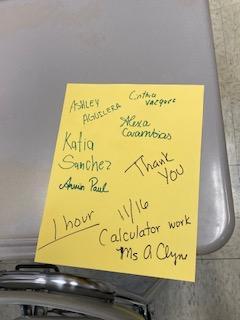 ASHLEY
AGUILERA
Cinthia
Vazquez
Alexa
Covarrubias
Katia
Sanchez
Thank
You
Paul
1 hour
11/16
Calculator work
Ms A Clyne